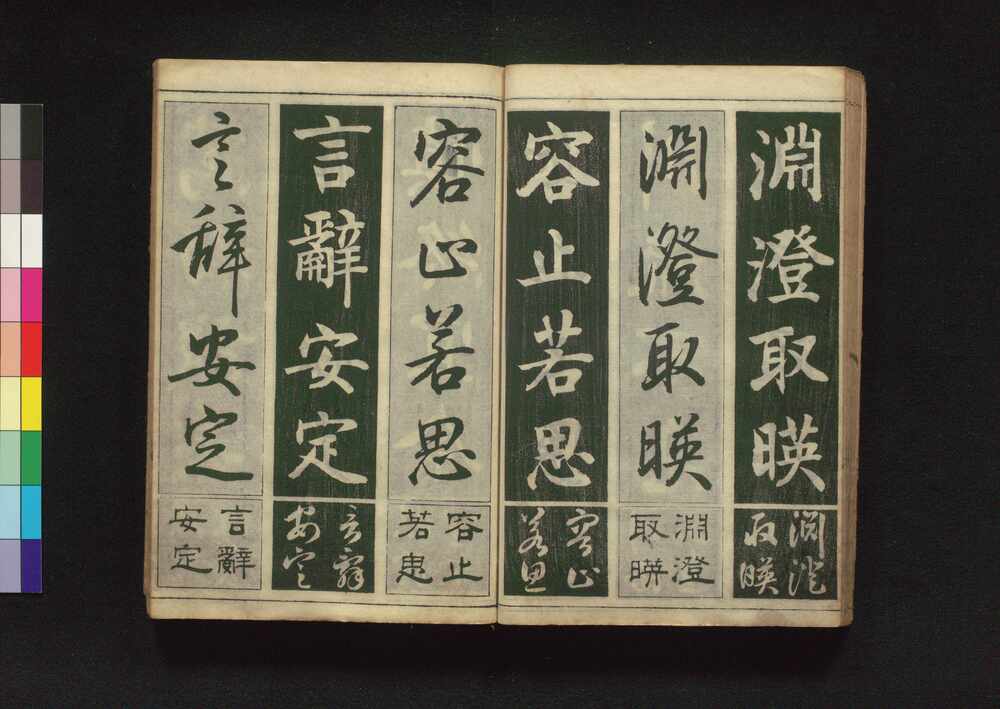 淵澄取暎
淵澄
取暎
淵澄取暎
淵澄
取暎
容止若思
容止
若思
容止若思
容止
若思
言辭安定
言辭
安定
言辞安定
言辭
安定